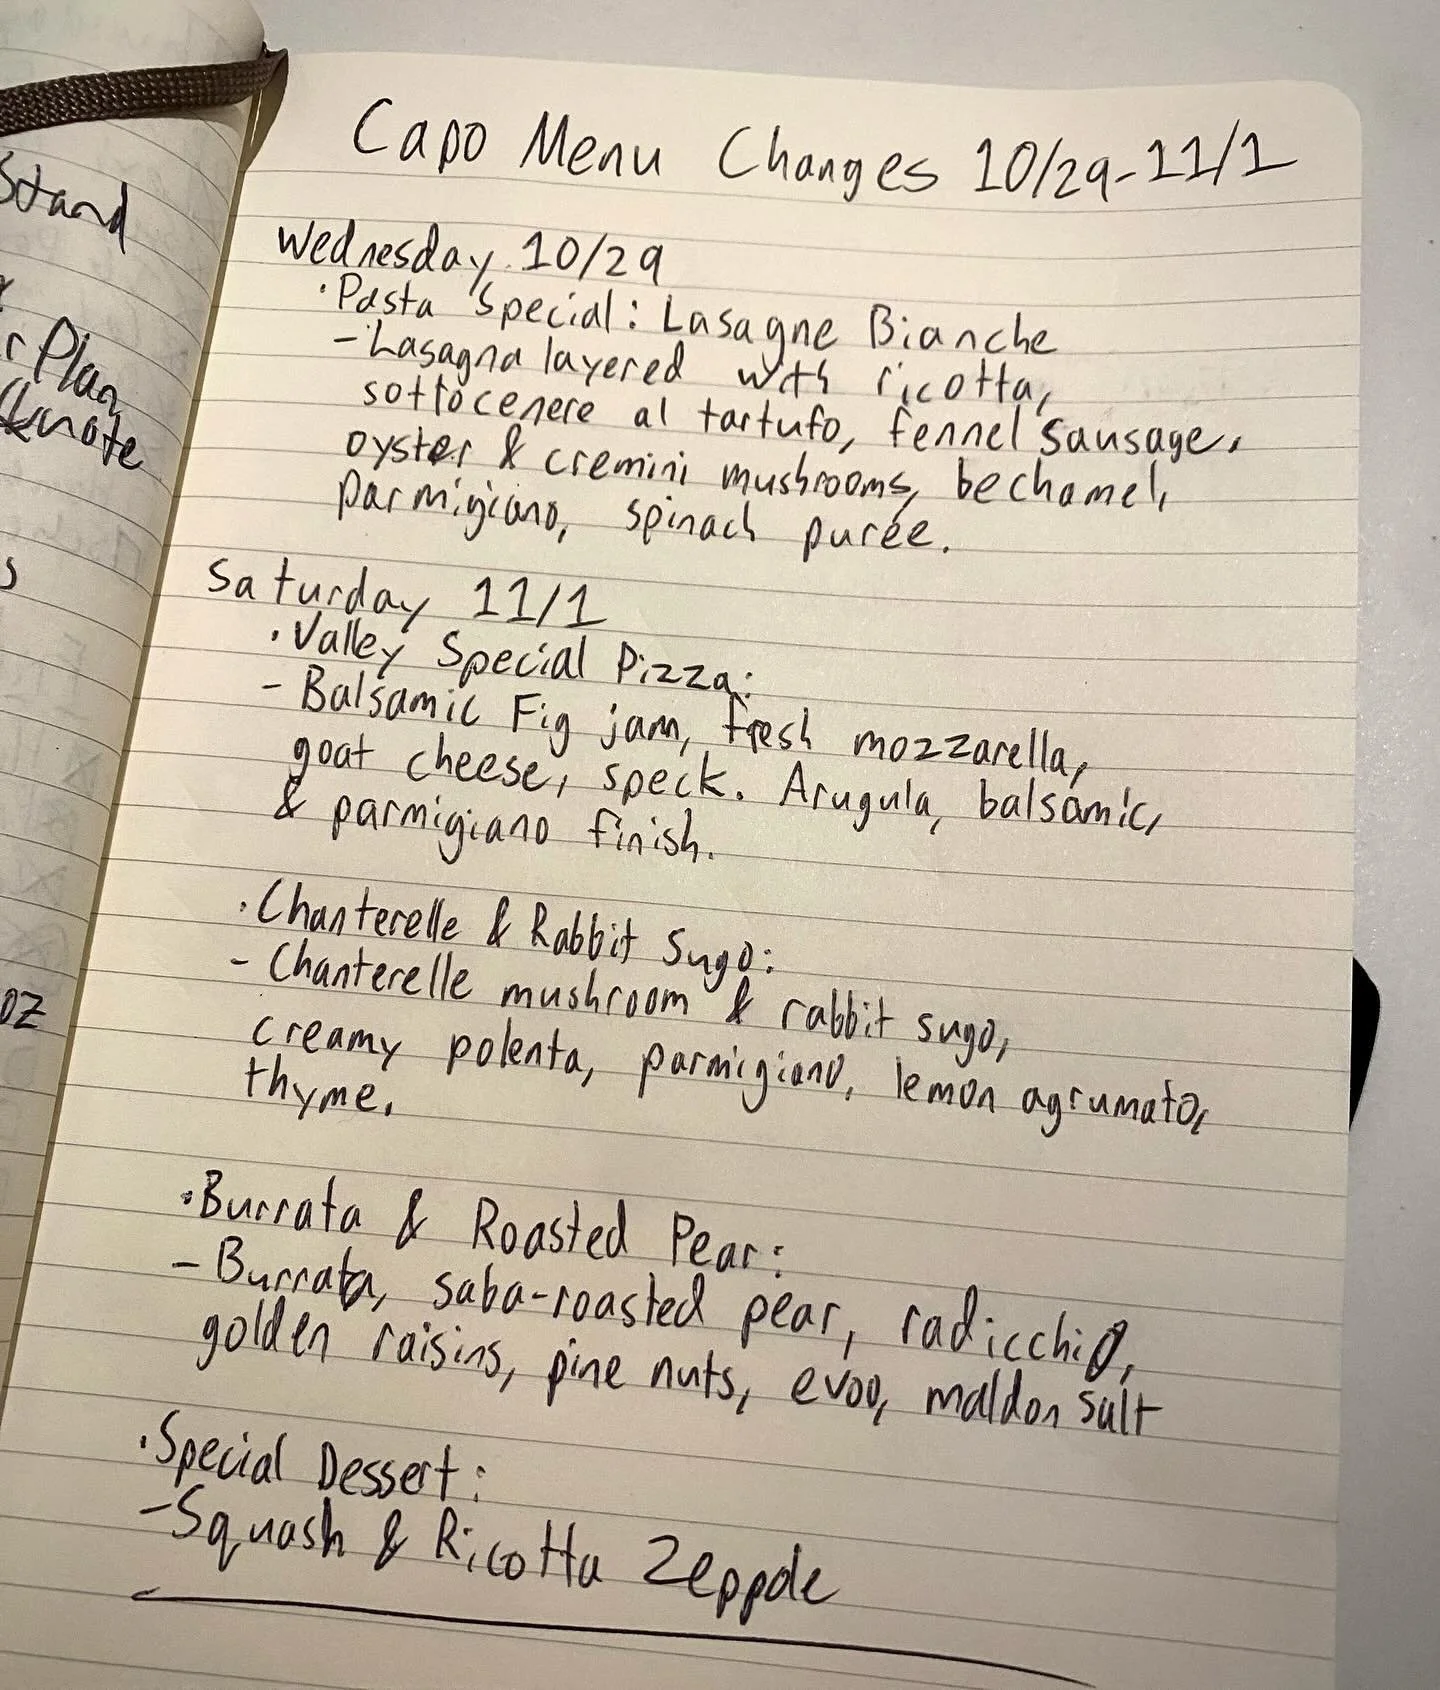 Stand
r Plan
oz
Capo Menu Changes 10/29-11/1
Wednesday 10/29
·Pasta Special: Lasagne Bianche
-Lasagna layered with ricotta,
sottocenere al tartufo, fennel sausage,
oyster & cremini mushrooms, bechamel,
parmigiano, spinach purée.
Saturday 11/1
·Valley Special Pizza:
- Balsamic Fig jam, fresh mozzarella,
goat cheese, speck. Arugula, balsamic,
& parmigiano finish.
·Chanterelle & Rabbit Sugo:
- Chanterelle mushroom & rabbit sugo,
creamy polenta, parmigiano, lemon agrumato,
thyme.
·Burrata & Roasted Pear:
- Burrata, saba-roasted pear, radicchio,
golden raisins, pine nuts, evoo, maldon salt
·Special Dessert:
-Squash & Ricotta Zeppole